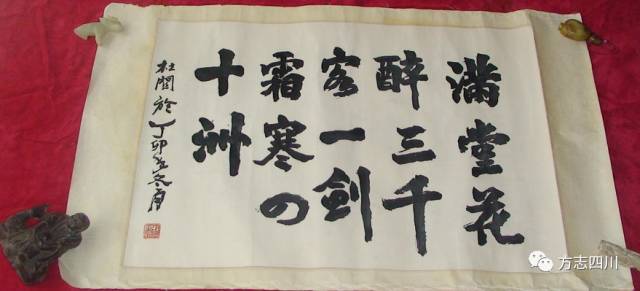 满堂花
醉三千
客一剑
霜寒四
十洲
杜於丁卯冬
方志四川